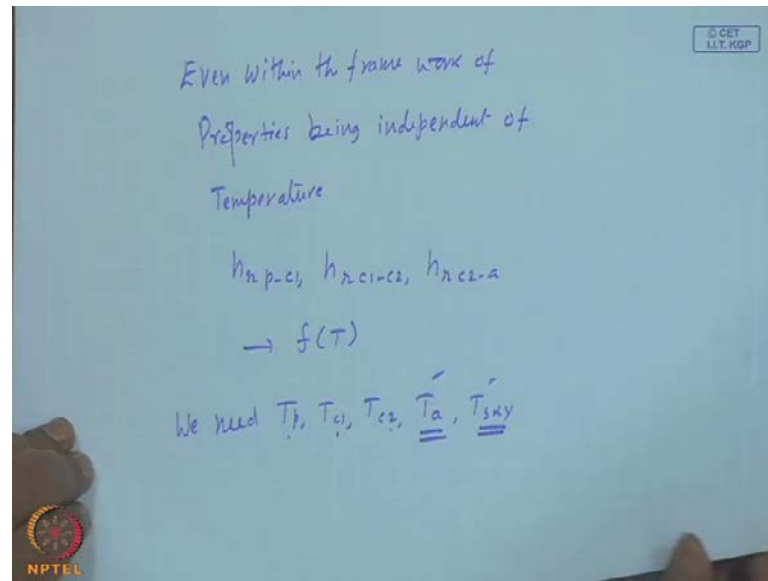 © CET
I.I.T. KGP
Even within th frame work of
Properties being independent of
Temperature
hr p-c1, hr c1-c2, hr c2-a
→ f(T)
We need Tp, Tc1, Tc2, Ta, Tsky
NPTEL